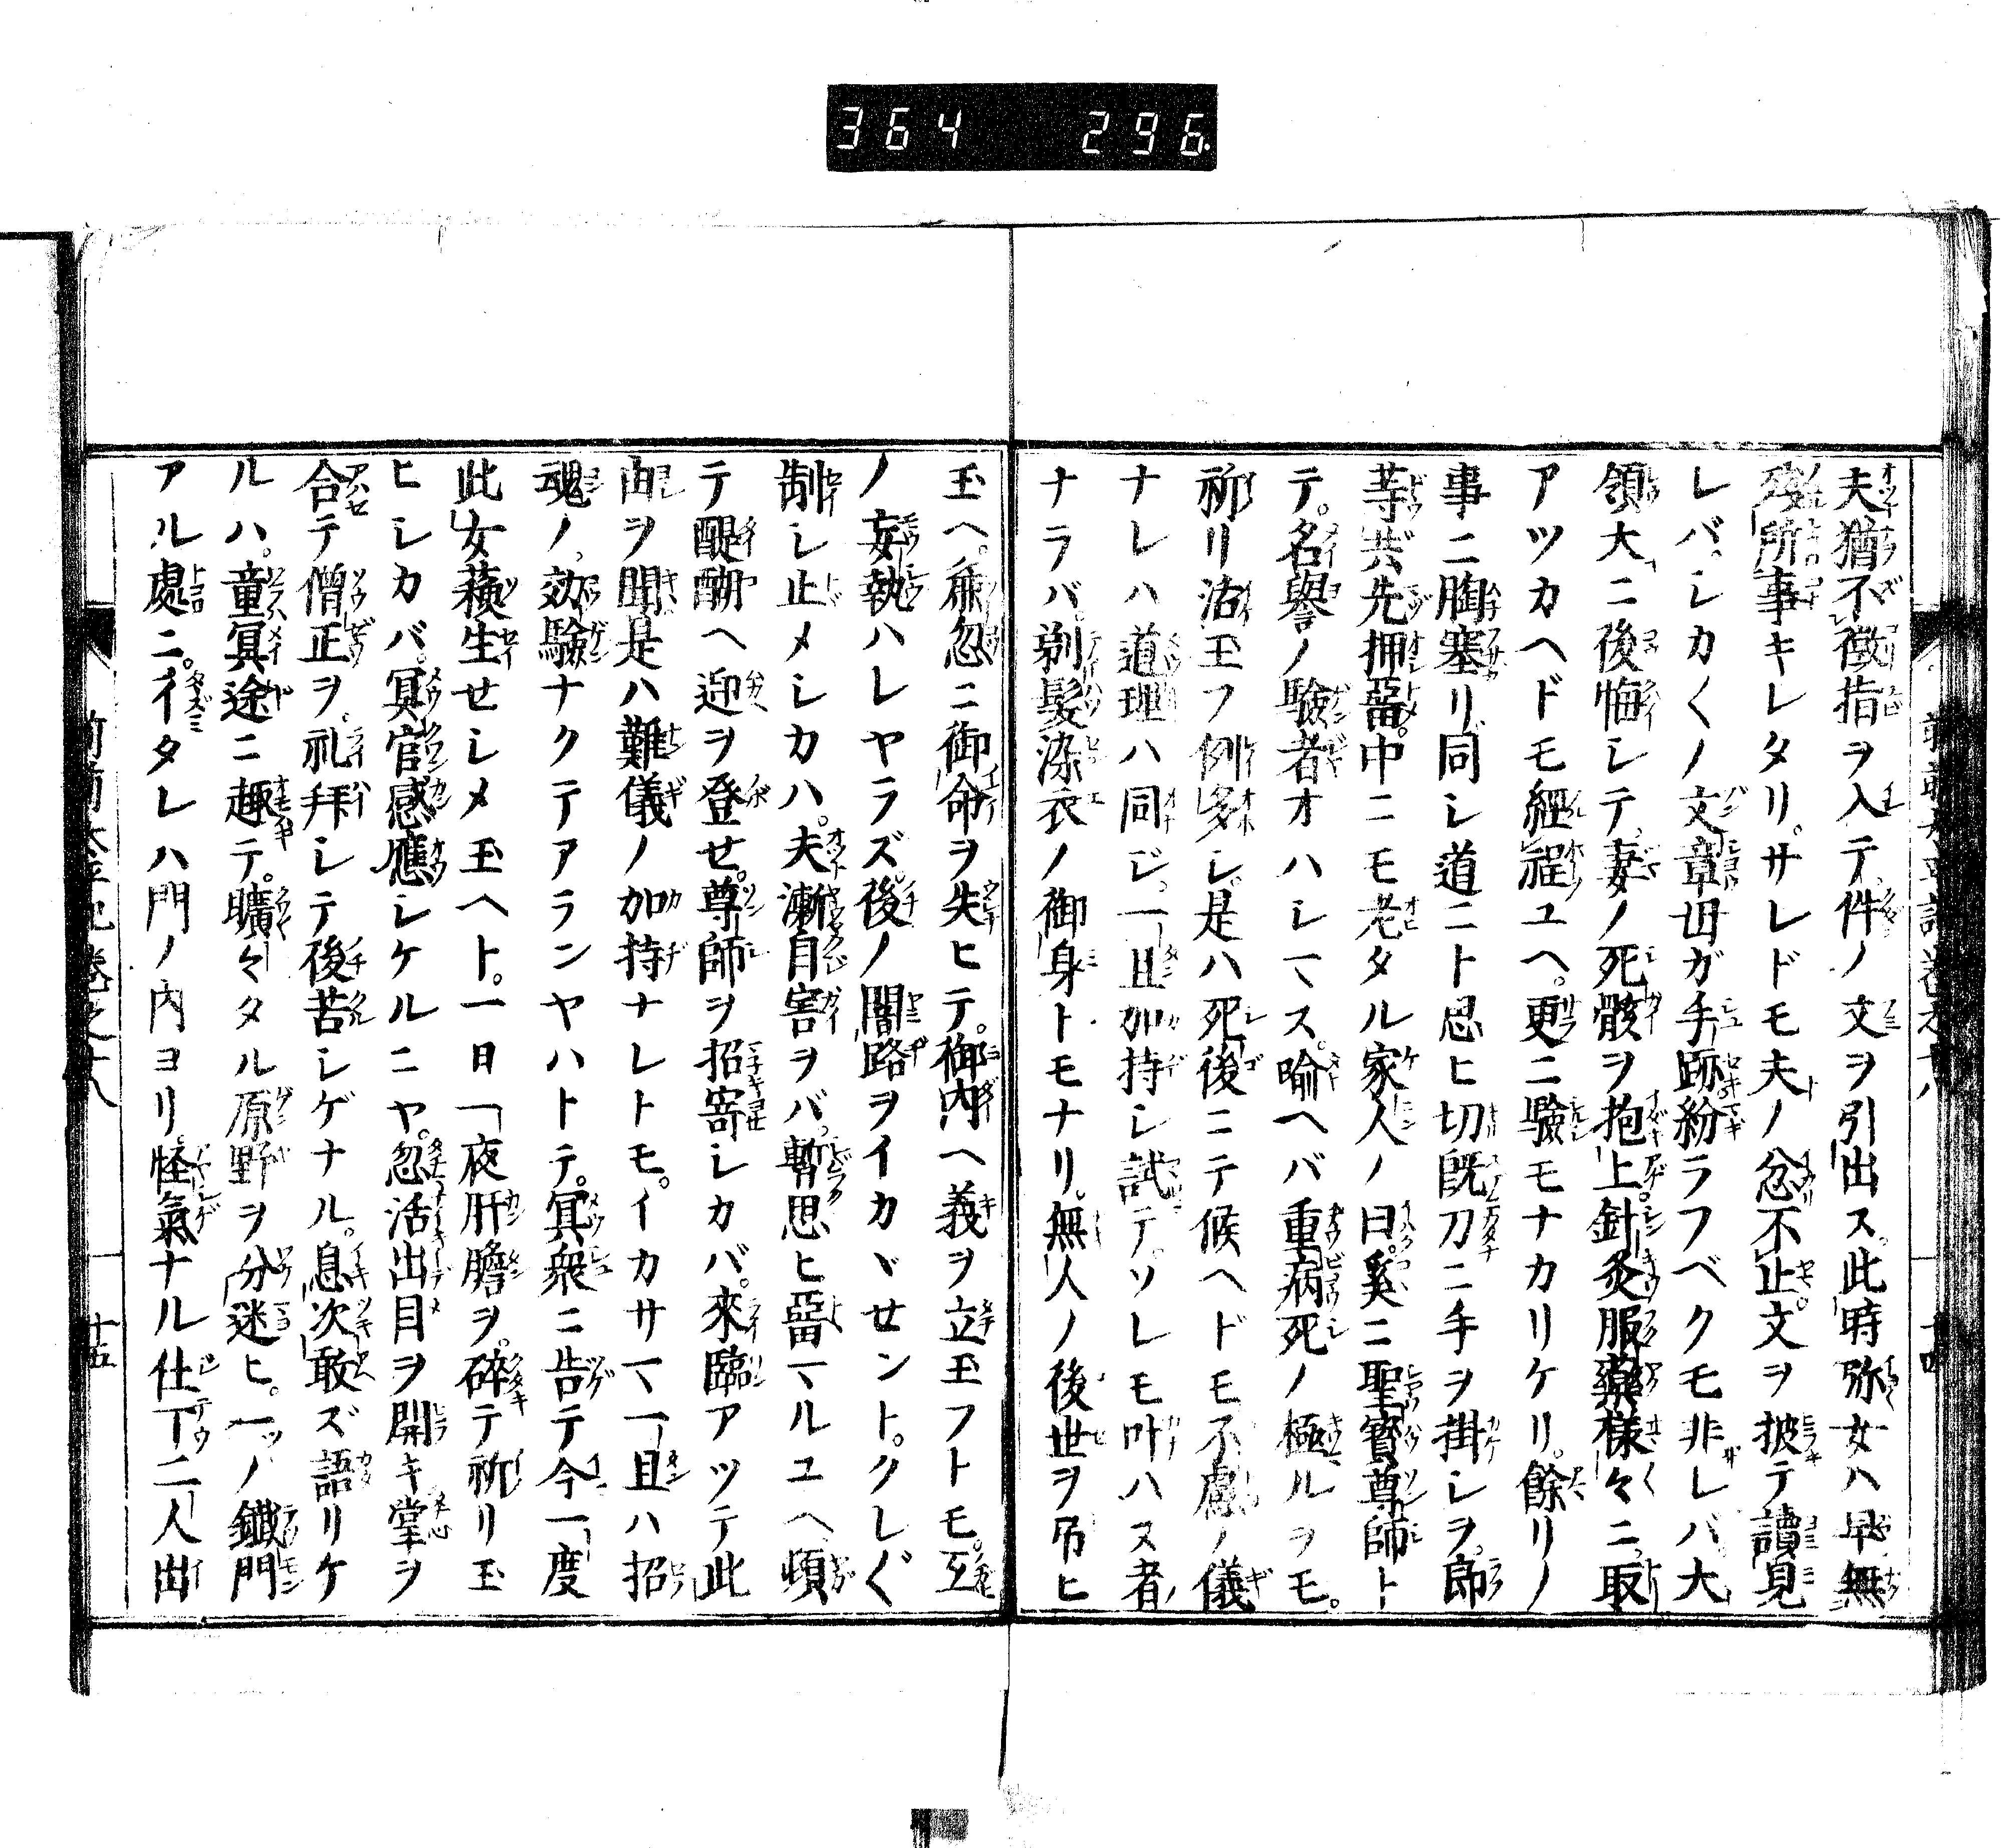 364 296
夫猶不懲指ヲ入テ件ノ文ヲ引出ス。此時弥女ハ早無
所事キレタリ。サレドモ夫ノ忿不止。文ヲ披テ讀見
レバ。シカ〱ノ文章母ガ手跡。紛ラフベクモ非レバ大
領大ニ後悔シテ。妻ノ死骸ヲ抱上針灸服藥樣々ニ。取
アツカヘドモ經程ユヘ。更ニ驗モナカリケリ。餘リノ
事ニ胸塞リ同シ道ニト思ヒ切既刀ニ手ヲ掛シヲ。郎
等共先押畱。中ニモ老タル家人ノ曰。爰ニ聖寶尊師ト
テ。名譽ノ驗者オハシマス。喩ヘバ重病死ノ極ルヲモ。
祈リ活玉フ例多シ。是ハ死後ニテ候ヘドモ不慮ノ儀
ナレハ道理ハ同ジ。一旦加持シ試テ。ソレモ叶ハヌ者
ナラバ。剃髮染衣ノ御身トモナリ。無人ノ後世ヲ吊ヒ
玉ヘ。麁忽ニ御命ヲ失ヒテ。御内ヘ義ヲ立玉フトモ。互
ノ妄執ハレヤラズ。後ノ闇路ヲイカヾせント。クレ〲
制シ止メシカハ。夫漸自害ヲバ。暫思ヒ畱マルユヘ頓
テ醍醐ヘ迎ヲ登せ。尊師ヲ招寄シカバ。來臨アツテ此
由ヲ聞是ハ難儀ノ加持ナレトモ。イカサマ一旦ハ招
魂ノ。効驗ナクテアランヤハトテ。冥衆ニ告テ今一度
此女蘓生せシメ玉ヘト。一日一夜肝膽ヲ。碎テ祈リ玉
ヒシカバ。冥官感應シケルニヤ。忽活出目ヲ開キ掌ヲ
合テ僧正ヲ。礼拜シテ後苦シゲナル。息次敢ズ語リケ
ルハ。童冥途ニ趣テ。曠々タル原野ヲ分迷ヒ。一ッノ鐵門
アル處ニ。彳タレハ門ノ内ヨリ。怪氣ナル仕丁二人出
十五